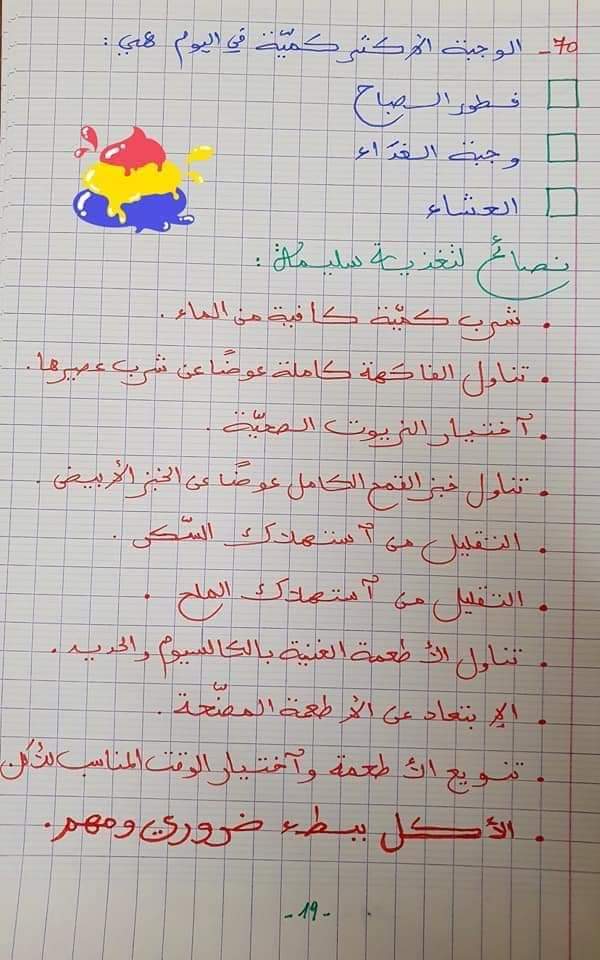 70- الوجبة الأكثر كميّة في اليوم هي :
فطور الصباح
وجبة الغذاء
العشاء
نصائح لتغذية سليمة :
• شرب كميّة كافية من الماء .
• تناول الفاكهة كاملة عوضًا عن شرب عصيرها .
• آختيار الزيوت الصحيّة .
• تناول خبز القمح الكامل عوضًا عن الخبز الأبيض .
• التقليل من آستهلاك السّكر .
• التقليل من آستهلاك الملح .
• تناول الأطعمة الغنية بالكالسيوم والحديد .
• الإبتعاد عن الأطعمة المصنّعة .
• تنويع الأطعمة وآختيار الوقت المناسب للأكل
• الأكل ببطء ضروري ومهم .
- 19 -